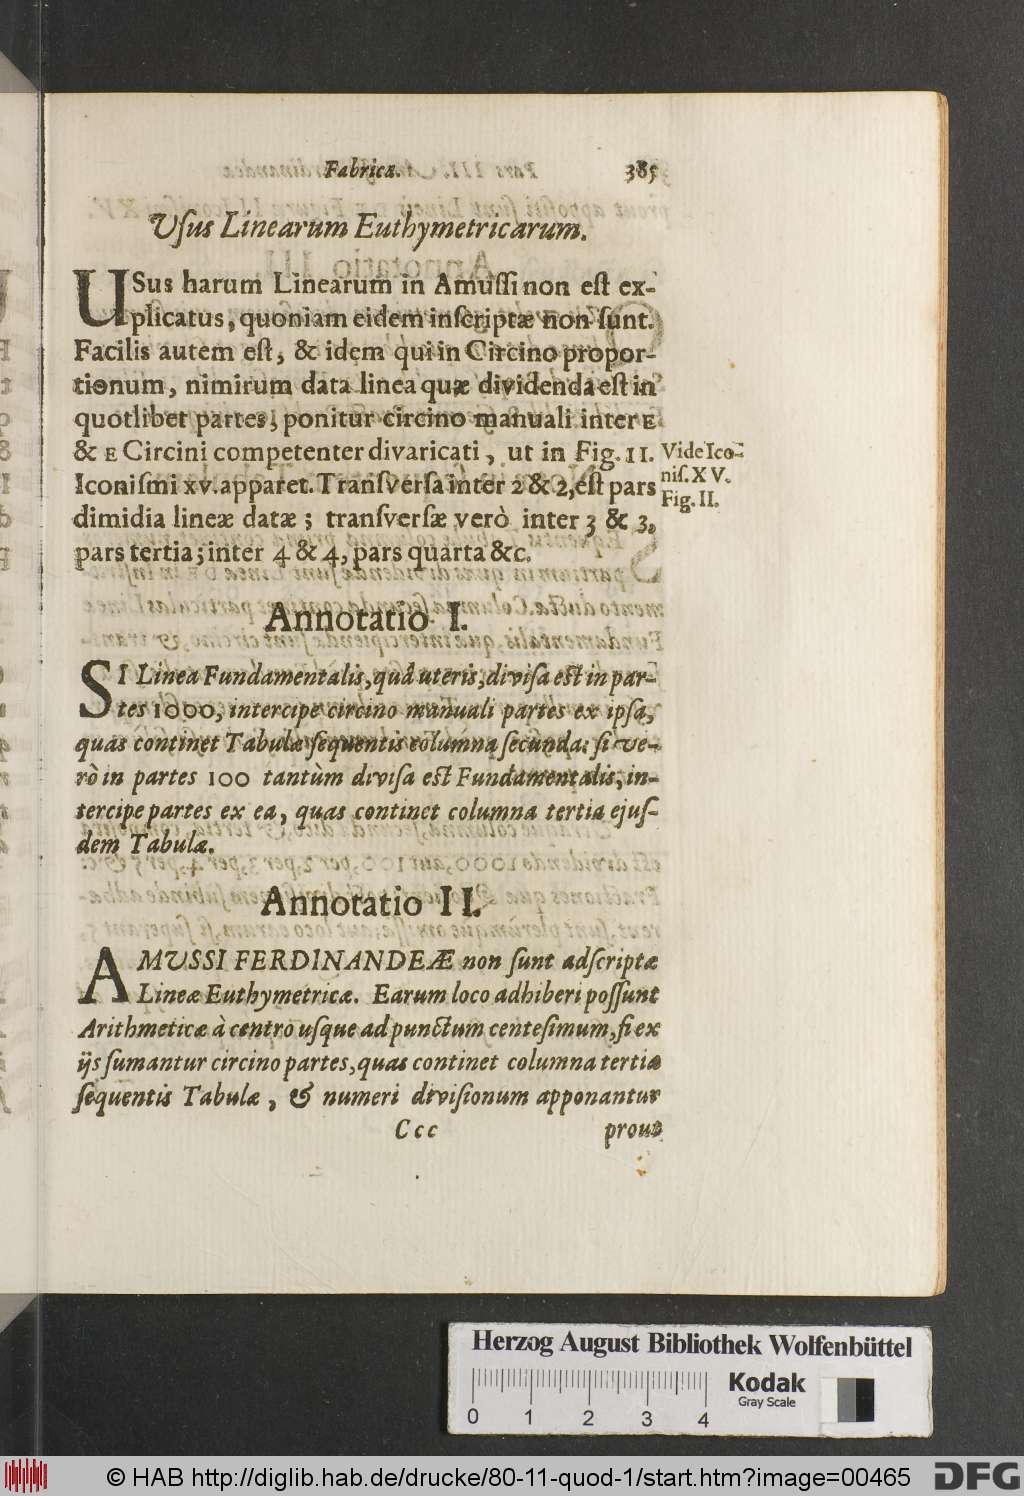 Fabrica.
385
Vſus Linearum Euthymetricarum.
USus harum Linearum in Amuſſi non eſt ex-
plicatus, quoniam eidem inſcriptæ non ſunt.
Facilis autem eſt, & idem qui in Circino propor-
tionum, nimirum data linea quæ dividenda eſt in
quotlibet partes, ponitur circino manuali inter E
& E Circini competenter divaricati, ut in Fig. II.
Iconiſmi xv. apparet. Tranſverſa inter 2 & 2, eſt pars
dimidia lineæ datæ; tranſverſæ verò inter 3 & 3,
pars tertia; inter 4 & 4, pars quarta &c.
Vide Ico-
niſ. XV.
Fig. II.
Annotatio I.
SI Linea Fundamentalis, quâ uteris, diviſa eſt in par-
tes 1000, intercipe circino manuali partes ex ipſa,
quas continet Tabulæ ſequentis columna ſecunda: ſi ve-
rò in partes 100 tantùm diviſa eſt Fundamentalis, in-
tercipe partes ex ea, quas continet columna tertia ejuſ-
dem Tabulæ.
Annotatio II.
AMUSSI FERDINANDEÆ non ſunt adſcriptæ
Lineæ Euthymetricæ. Earum loco adhiberi poſſunt
Arithmeticæ à centro uſque ad punctum centeſimum, ſi ex
ijs ſumantur circino partes, quas continet columna tertia
ſequentis Tabulæ, & numeri diviſionum apponantur
Ccc
prout
Herzog August Bibliothek Wolfenbüttel
Kodak
Gray Scale
0 1 2 3 4
© HAB http://diglib.hab.de/drucke/80-11-quod-1/start.htm?image=00465
DFG